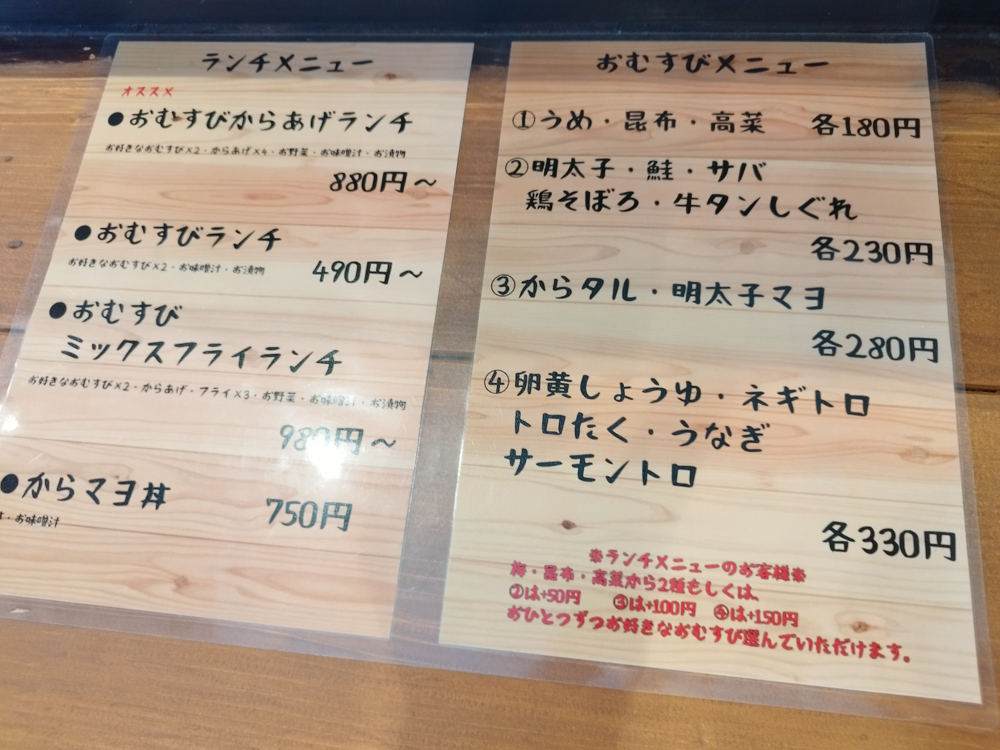 ランチメニュー
オススメ
●おむすびからあげランチ
お好きなおむすび×2・からあげ×4・お野菜・お味噌汁・お漬物
880円～
●おむすびランチ
お好きなおむすび×2・お味噌汁・お漬物
490円～
●おむすび
ミックスフライランチ
お好きなおむすび×2・からあげ・フライ×3・お野菜・お味噌汁・お漬物
980円～
●からマヨ丼
750円
・お味噌汁
おむすびメニュー
①うめ・昆布・高菜 各180円
②明太子・鮭・サバ
鶏そぼろ・牛タンしぐれ
各230円
③からタル・明太子マヨ
各280円
④卵黄しょうゆ・ネギトロ
トロたく・うなぎ
サーモントロ
各330円
※ランチメニューのお客様※
梅・昆布・高菜から2種もしくは、
②は+50円 ③は+100円 ④は+150円
おひとつずつお好きなおむすび選んでいただけます。